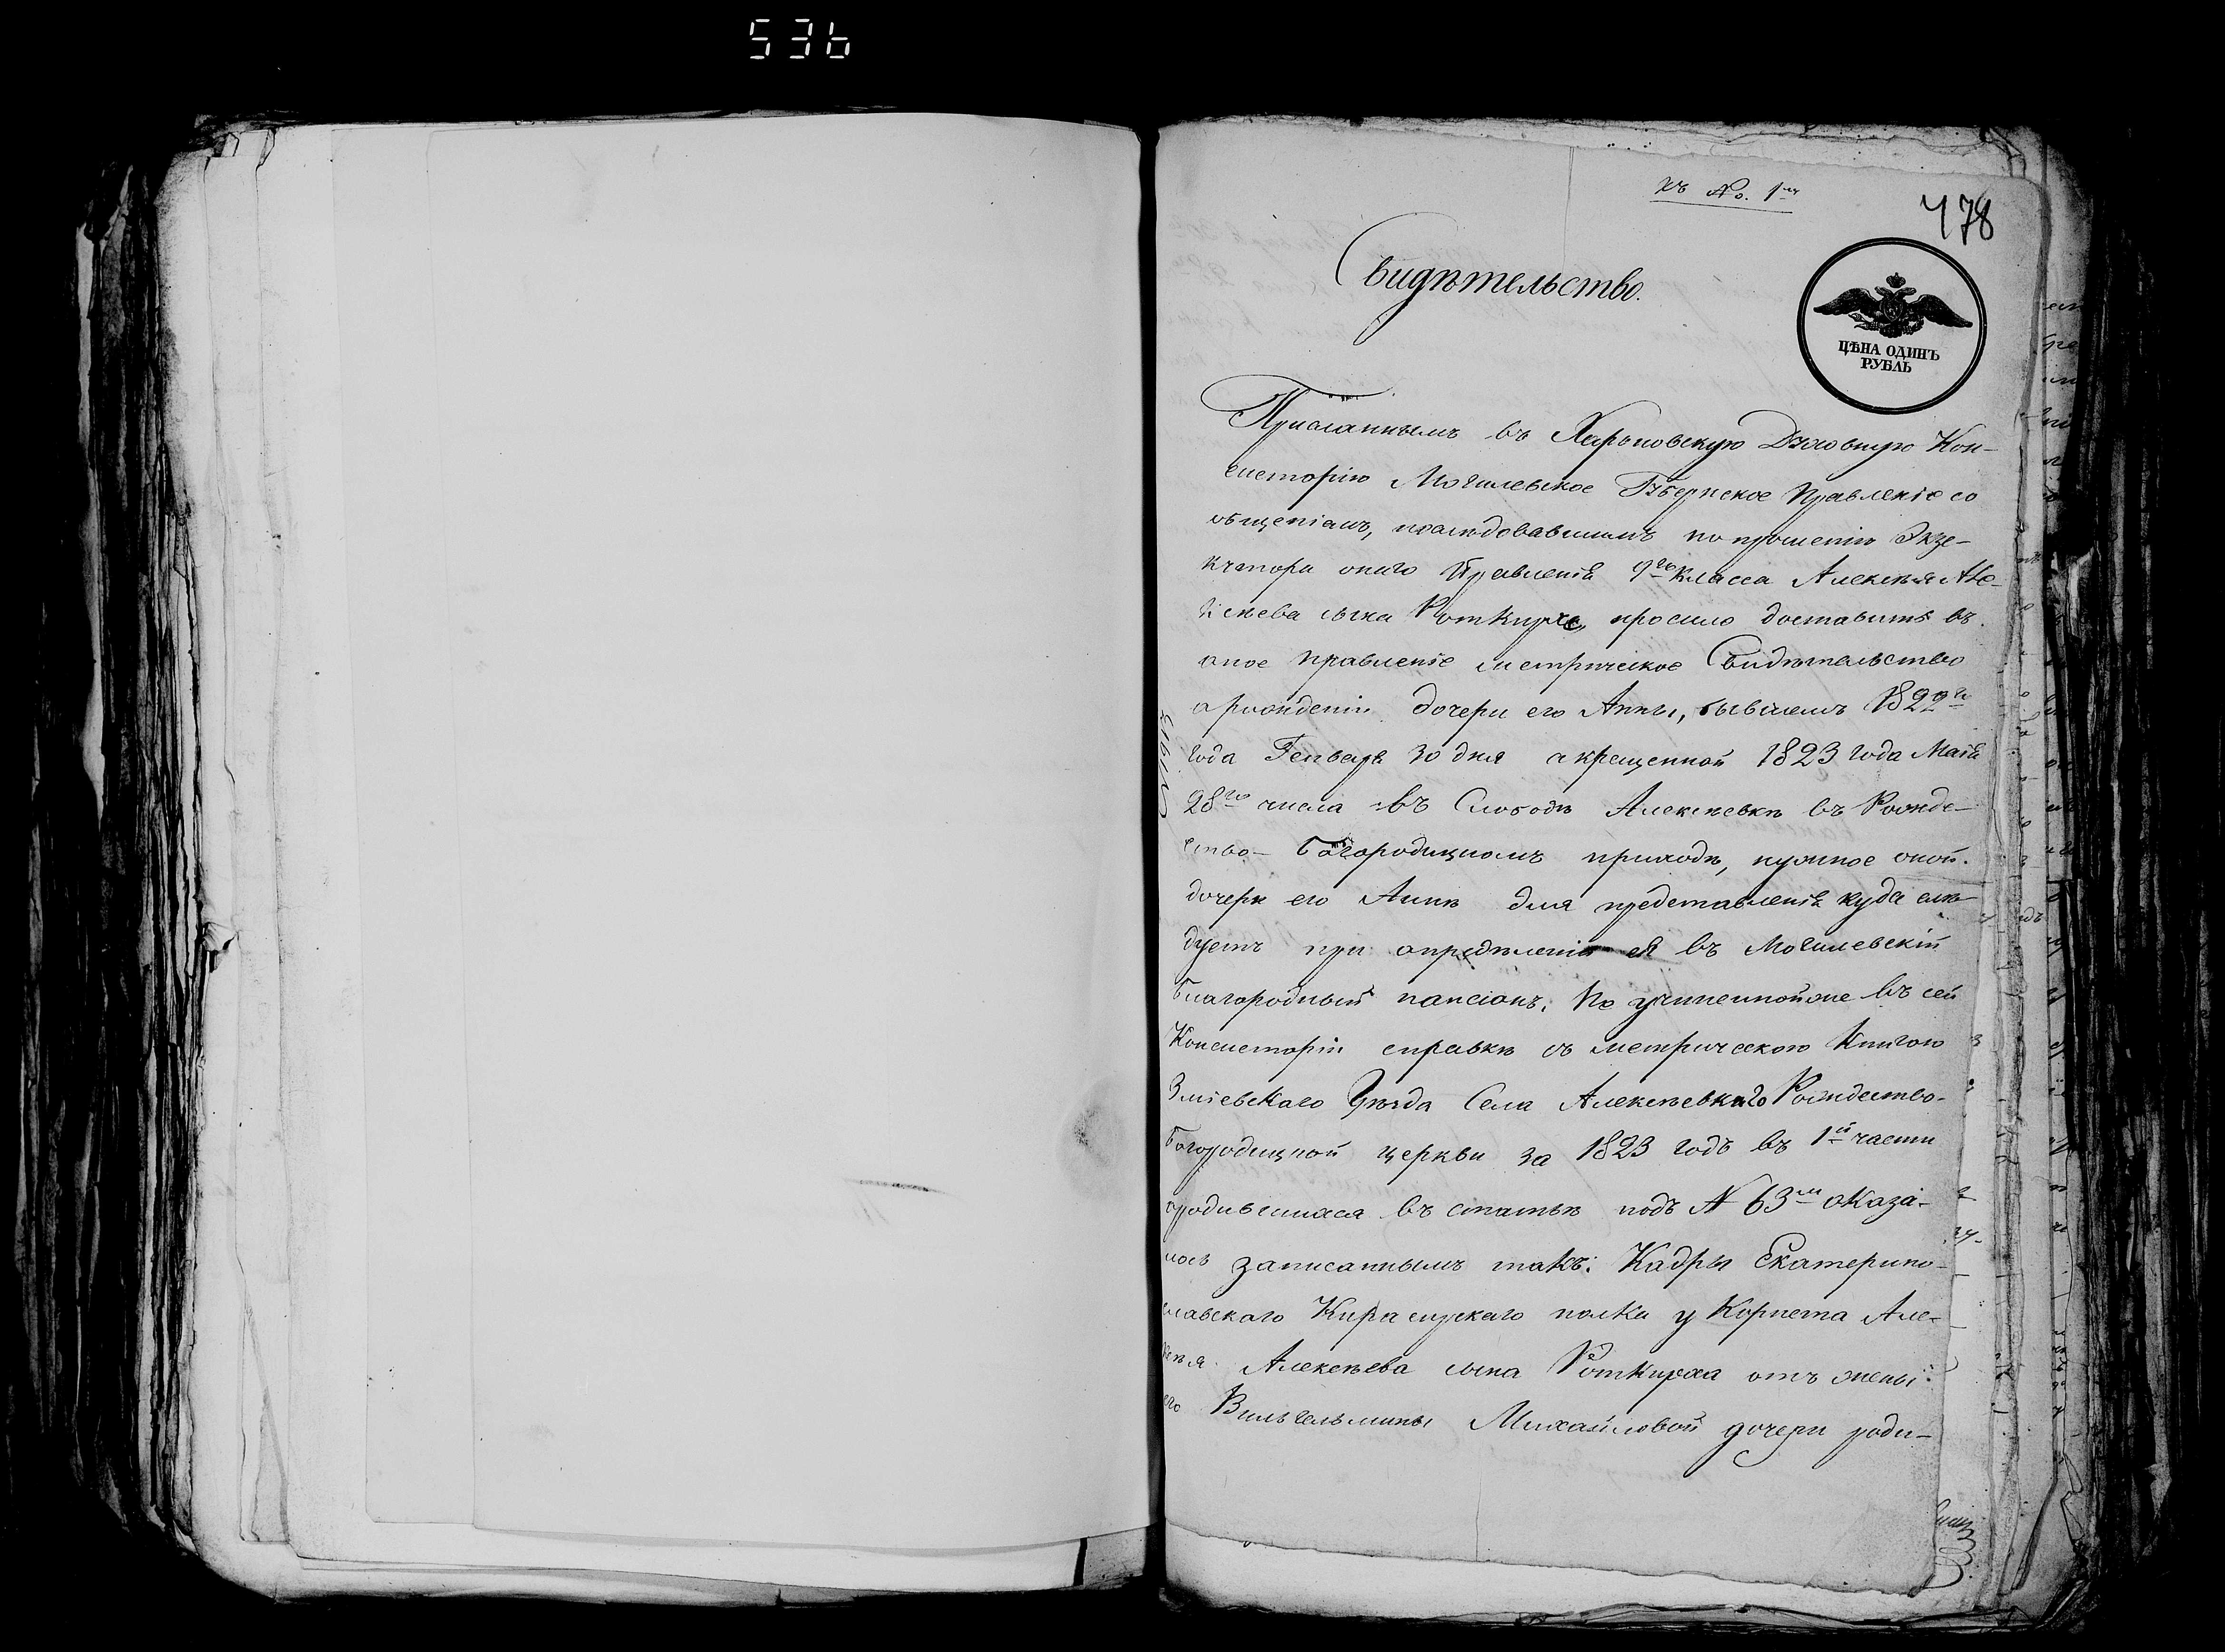 536
къ No. 1му
478
Свидѣтельство.
ЦѢНА ОДИНЪ
РУБЛЬ
Присланнымъ въ Харьковскую Духовную Кон-
систорію Могилевское Губернское Правленіе со
общеніемъ, послѣдовавшимъ по прошенію Экзе-
кутора онаго Правленія 9го Класса Алексѣя Але-
ксѣева сына Роткирха, просило доставить въ
оное Правленіе метрическое Свидѣтельство
о рожденіи дочери его Анны, бывшемъ 1822го
года Генваря 30 дня а крещенной 1823 года Маія
28го числа въ Слободѣ Алексѣевкѣ въ Рожде-
ство-Богородицкомъ приходѣ, нужное оной
дочери его Аннѣ для представленія куда слѣ-
дуетъ при опредѣленіи ея въ Могилевскій
благородный пансіонъ. По учиненной же въ сей
Консисторіи справкѣ съ метрическою Книгою
Зміевскаго Уѣзда Села Алексѣевкаго Рождество-
Богородицкой церкви за 1823 годъ въ 1й части
о родившихся въ статьѣ подъ N 63м оказа-
лось записаннымъ такъ: Кадры Екатерино-
славскаго Кирасирскаго полка у Корнета Але-
ксѣя Алексѣева сына Роткирха отъ жены
его Вильгельмины Михайловой дочери роди-